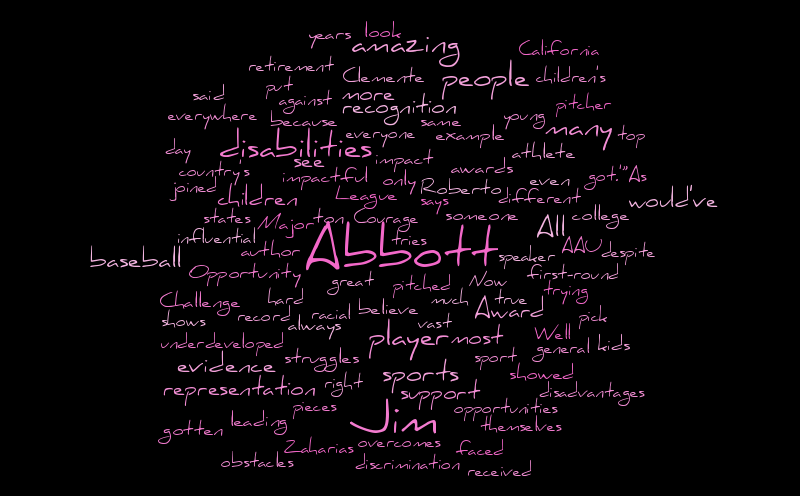 years look
amazing California
retirement Clemente people children's
said put against more recognition pitcher
everywhere because same young
everyone example many top
day disabilities see impact athlete
country's impactful only awards even got.'"As
joined children League Roberto says different would've
states Major ton Courage someone All college
influential tries
baseball author Abbott speaker AAU despite
Opportunity great pitched Now first-round trying
Challenge hard believe much true Award
shows record racial vast pick
always
underdeveloped player most Well general kids
evidence struggles sport
sports showed
representation right support disadvantages
pieces opportunities
gotten leading Jim themselves
Zaharias overcomes faced
obstacles discrimination received